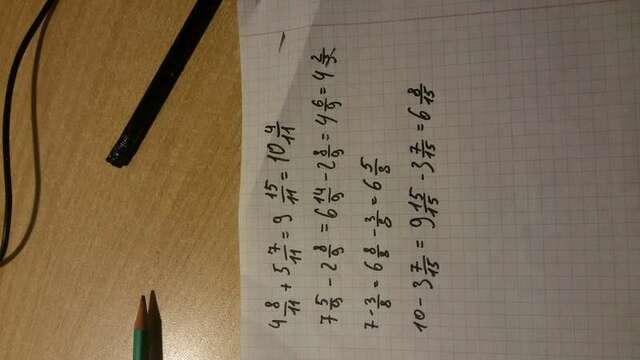 4 8/11 + 5 7/11 = 9 15/11 = 10 4/11
7 5/9 - 2 8/9 = 6 14/9 - 2 8/9 = 4 6/9 = 4 2/3
7 - 3/8 = 6 8/8 - 3/8 = 6 5/8
10 - 3 7/15 = 9 15/15 - 3 7/15 = 6 8/15